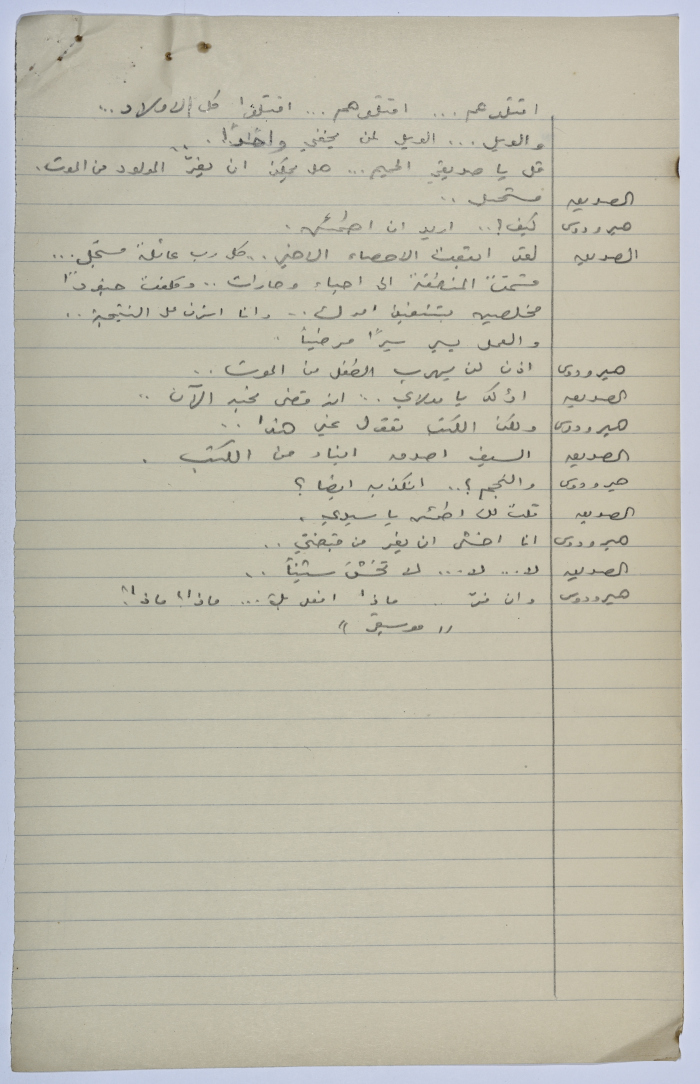 اقتلوهم ... اقتلوهم ... اقتلوا كل الاولاد ...
والويل ... الويل لمن يخفي واحدًا! ..
قل يا صديقي الحميم ... هل يمكن ان يفرّ المولود من الموت.
الصديق مستحيل ..
هيرودوس كيف؟ .. اريد ان اطمئن .
الصديق لقد اتبعت الاحصاء الاخير .. كل رب عائلة مسجّل ...
قسّمت المنطقة الى احياء وحارات .. وكلفت جنودًا
مخلصين بتنفيذ امرك .. وانا اشرف على النتيجة ..
والعمل يسير سيرًا مرضيًا .
هيرودوس اذن لن يهرب الطفل من الموت ..
الصديق اؤكد يا مولاي .. انه قضى نحبه الآن ..
هيرودوس ولكن الكتب تقول غير هذا ..
الصديق السيف اصدق انباء من الكتب .
هيرودوس والنجم؟ .. اتكذبه ايضا ؟
الصديق قلت لك اطمئن يا سيدي .
هيرودوس انا اخشى ان يفر من قبضتي ..
الصديق لا ... لا ... لا تخشَ شيئاً ..
هيرودوس وان فرّ .. ماذا افعل ... ماذا؟! ماذا؟!
" موسيقى "